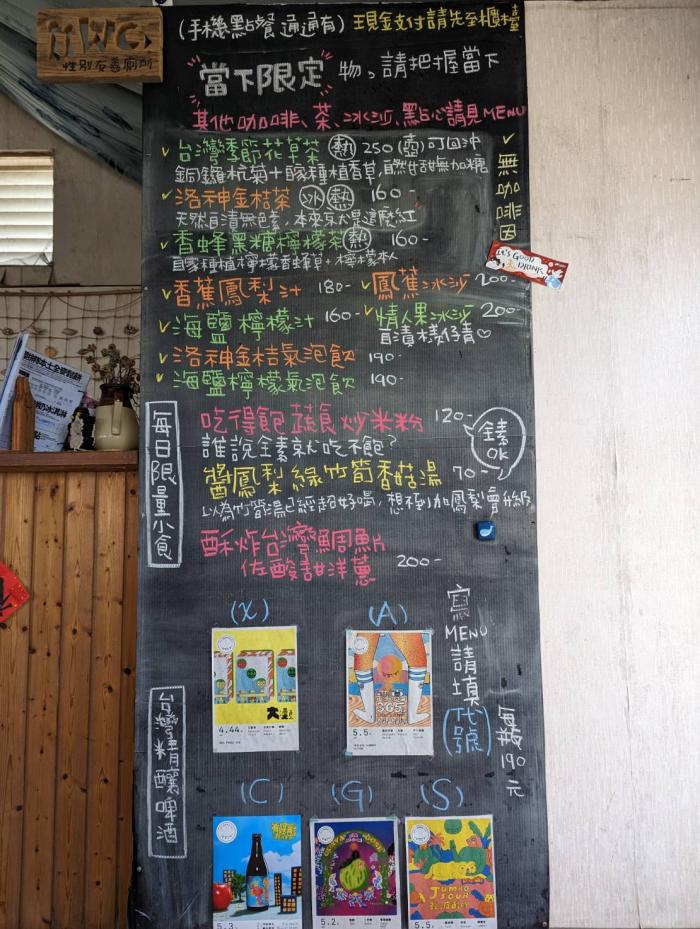 性別友善廁所
(手機點餐 通通有) 現金支付請先至櫃檯
當下限定 物,請把握當下
其他咖啡、茶、冰沙、點心請見MENU
✓ 台灣季節花草茶 (熱) 250 (壺) 可回沖
銅鑼杭菊+自家種植香草,自然甘甜無加糖
✓ 無咖啡因
✓ 洛神金桔茶 (冰)(熱) 160-
天然自漬無色素,本來就是這麼紅
✓ 香蜂黑糖檸檬茶 (熱) 160-
自家種植檸檬香蜂草+檸檬本人
It's GOOD
DRINK
✓ 香蕉鳳梨汁 180-
✓ 鳳蕉冰沙 200-
✓ 海鹽檸檬汁 160-
✓ 情人果冰沙 200-
自漬檨仔青♡
✓ 洛神金桔氣泡飲 190-
✓ 海鹽檸檬氣泡飲 190-
每日限量小食
吃得飽蔬食炒米粉 120-
誰說全素就吃不飽?
全素OK
醬鳳梨綠竹筍香菇湯 70-
以為竹筍湯已經超好喝,想不到加鳳梨會升級
酥炸台灣鯛魚片
佐酸甜洋蔥 200-
台灣精釀啤酒
(X)
(A)
寫MENU請填(代號)
每瓶190元
4.44
365
5.5
(C)
(G)
(S)
5.3
5.2
JUMBO
SOUR
5.5